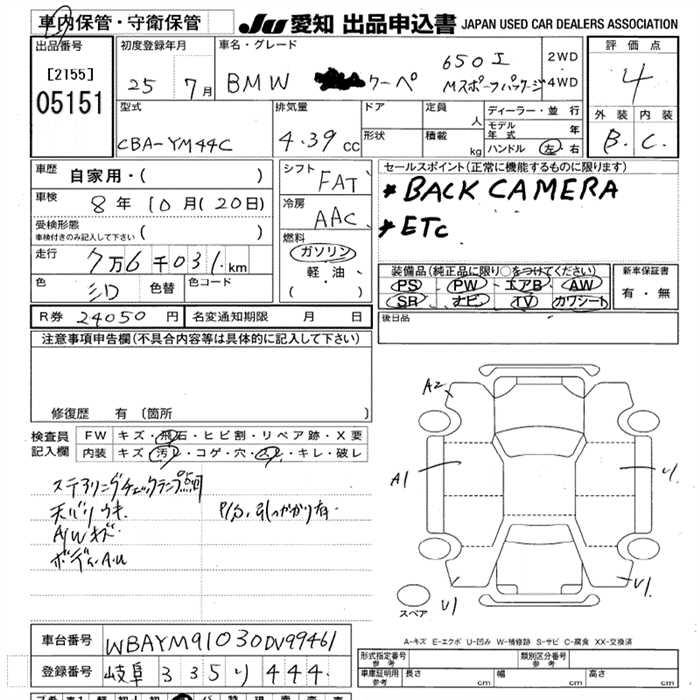 車内保管・守衛保管
JU 愛知 出品申込書 JAPAN USED CAR DEALERS ASSOCIATION
出品番号
[2155]
05151
初度登録年月
25 7月
車名・グレード
BMW クーペ
650I
Mスポーツパッケージ
2WD
4WD
評価点
4
外装 内装
B. C.
型式
CBA-YM44C
排気量
4.39 cc
ドア
形状
定員 人
積載 kg
ディーラー・並行
モデル年式 年
ハンドル 左・右
車歴 自家用・( )
車検 8年10月(20日)
受検形態
車検付きのみ記入して下さい ( )
走行 7万6千031km
色 色替 色コード
R券 24050円 名変通知期限 月 日
シフト FAT
冷房 AAC
燃料
ガソリン
軽・油
( )
セールスポイント(正常に機能するものに限ります)
*BACK CAMERA
*ETC
装備品(純正品に限り○をつけてください)
PS PW エアB AW
SR ナビ TV カワシート
新車保証書
有・無
後日品
注意事項申告欄(不具合内容等は具体的に記入して下さい)
修復歴 有 [箇所 ]
検査員記入欄
FW キズ・飛石・ヒビ割・リペア跡・X要
内装 キズ・汚レ・コゲ・穴・スレ・キレ・破レ
ステアリングチェックランプ点灯
天バリウキ
A/Wキズ
ボディA.U
P/S引っかかり有
A2
A1
U1
U1
U1
スペア
A-キズ E-エクボ U-凹み W-補修跡 S-サビ C-腐食 XX-交換済
車台番号 WBAYM91030DV99461
登録番号 岐阜 335 り 444
形式指定番号 参考
類別区分番号 参考
車庫証明用 参考 長さ cm 幅 cm 高さ cm